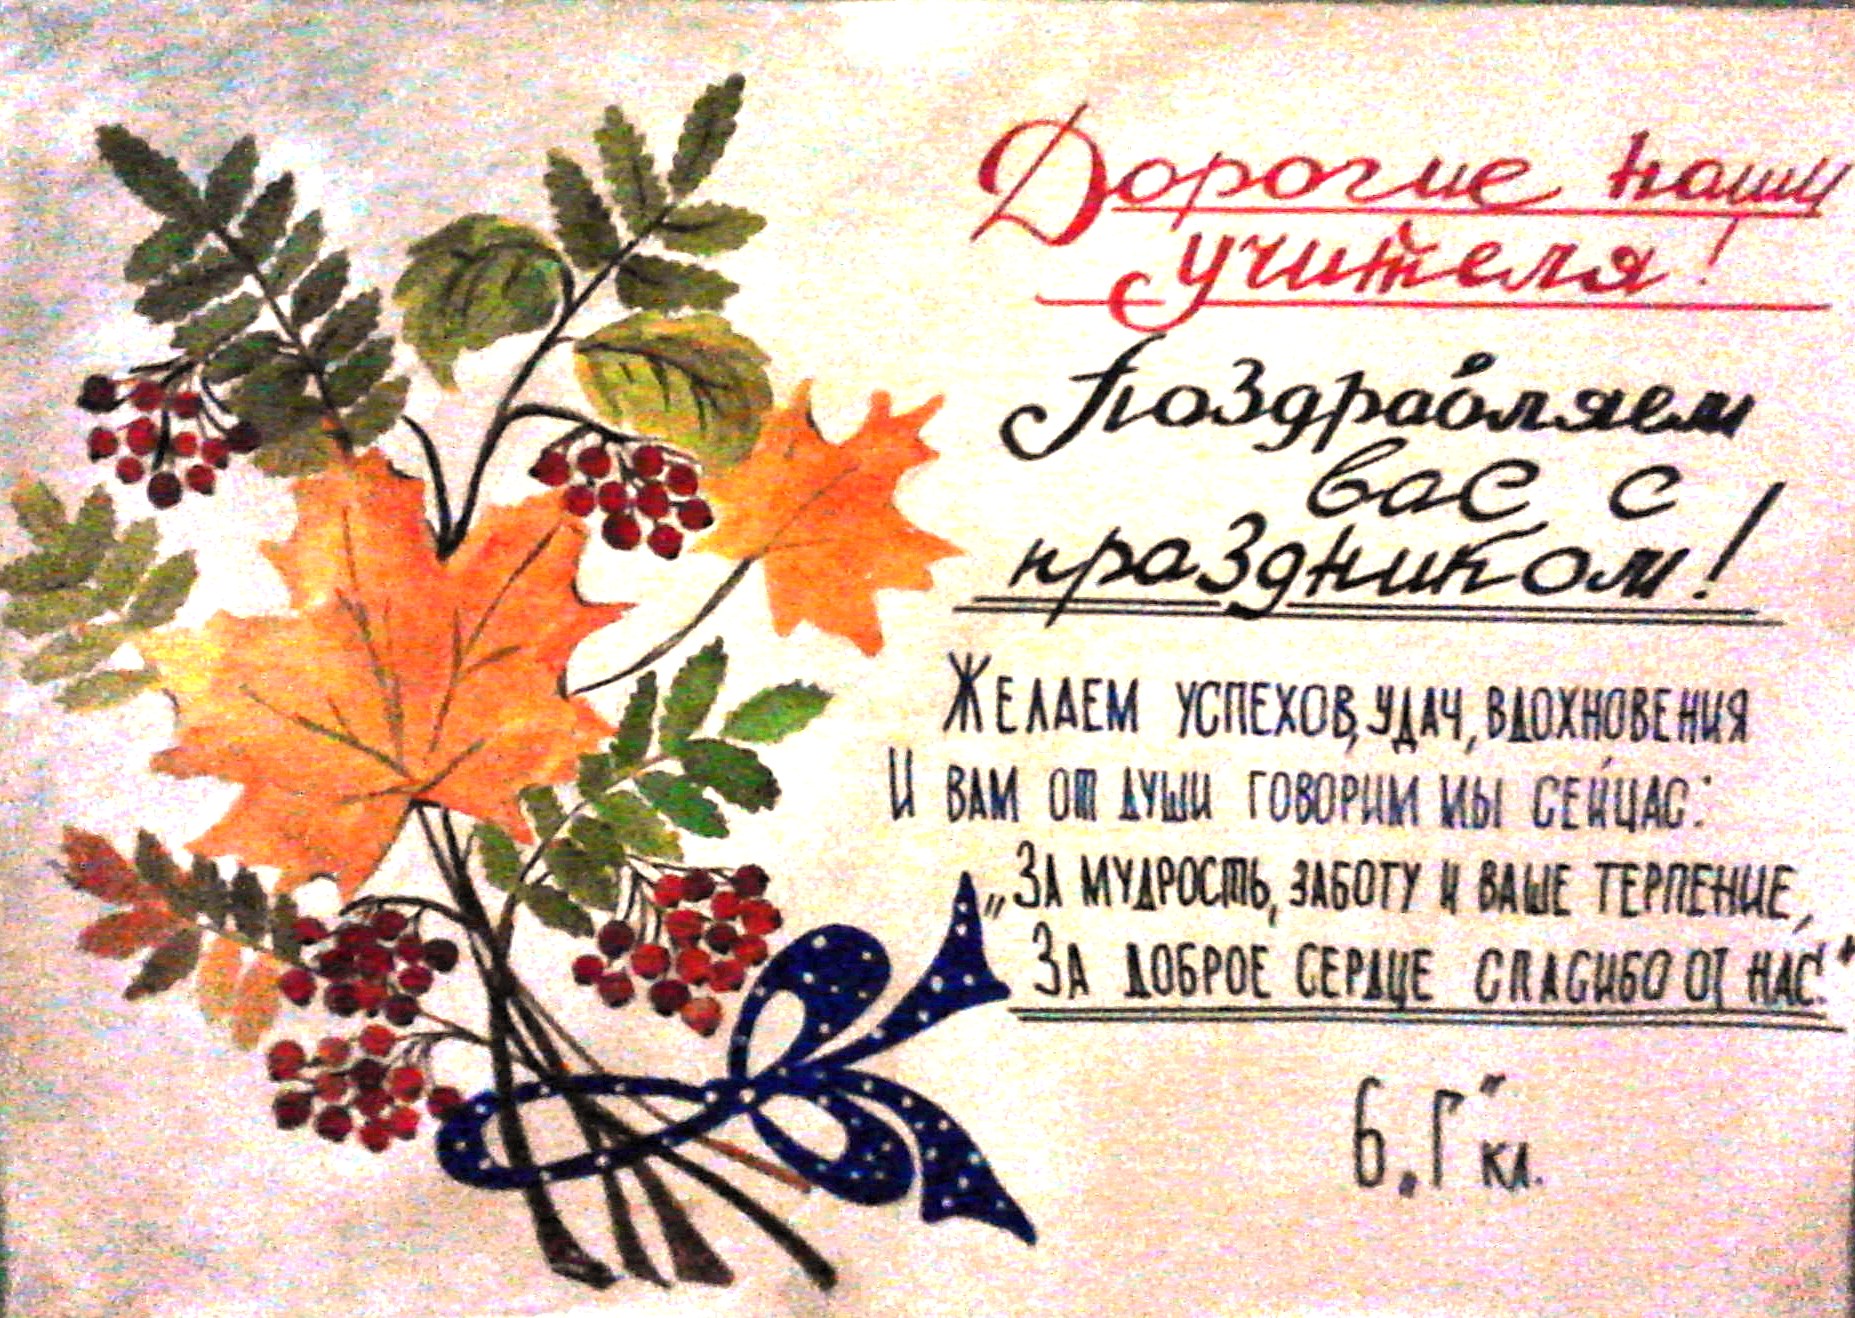 Дорогие наши
учителя!
Поздравляем
вас с
праздником!
Желаем успехов, удач, вдохновения
И вам от души говорим мы сейчас:
„За мудрость, заботу и ваше терпение,
За доброе сердце спасибо от нас!"
6 „Г" кл.